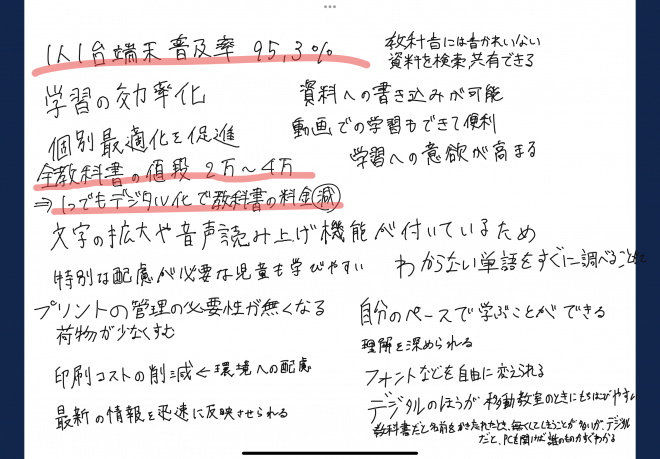 1人1台端末 普及率 95.3%
教科書には書かれいない
資料を検索,共有できる
学習の効率化
資料への書き込みが可能
個別最適化を促進
動画での学習もできて便利
学習への意欲が高まる
全教科書の値段 2万～4万
⇒1つでもデジタル化で教科書の料金減
文字の拡大や音声読み上げ機能が付いているため
特別な配慮が必要な児童も学びやすい
わからない単語をすぐに調べること
プリントの管理の必要性が無くなる
荷物が少なくすむ
自分のペースで学ぶことができる
理解を深められる
印刷コストの削減←環境への配慮
フォントなどを自由に変えられる
最新の情報を迅速に反映させられる
デジタルのほうが移動教室のときにもちはびやすい
教科書だと名前をかき忘れたとき、無くしてしまうことが多いが、デジタル
だと、PCを開けば誰のものかすぐわかる